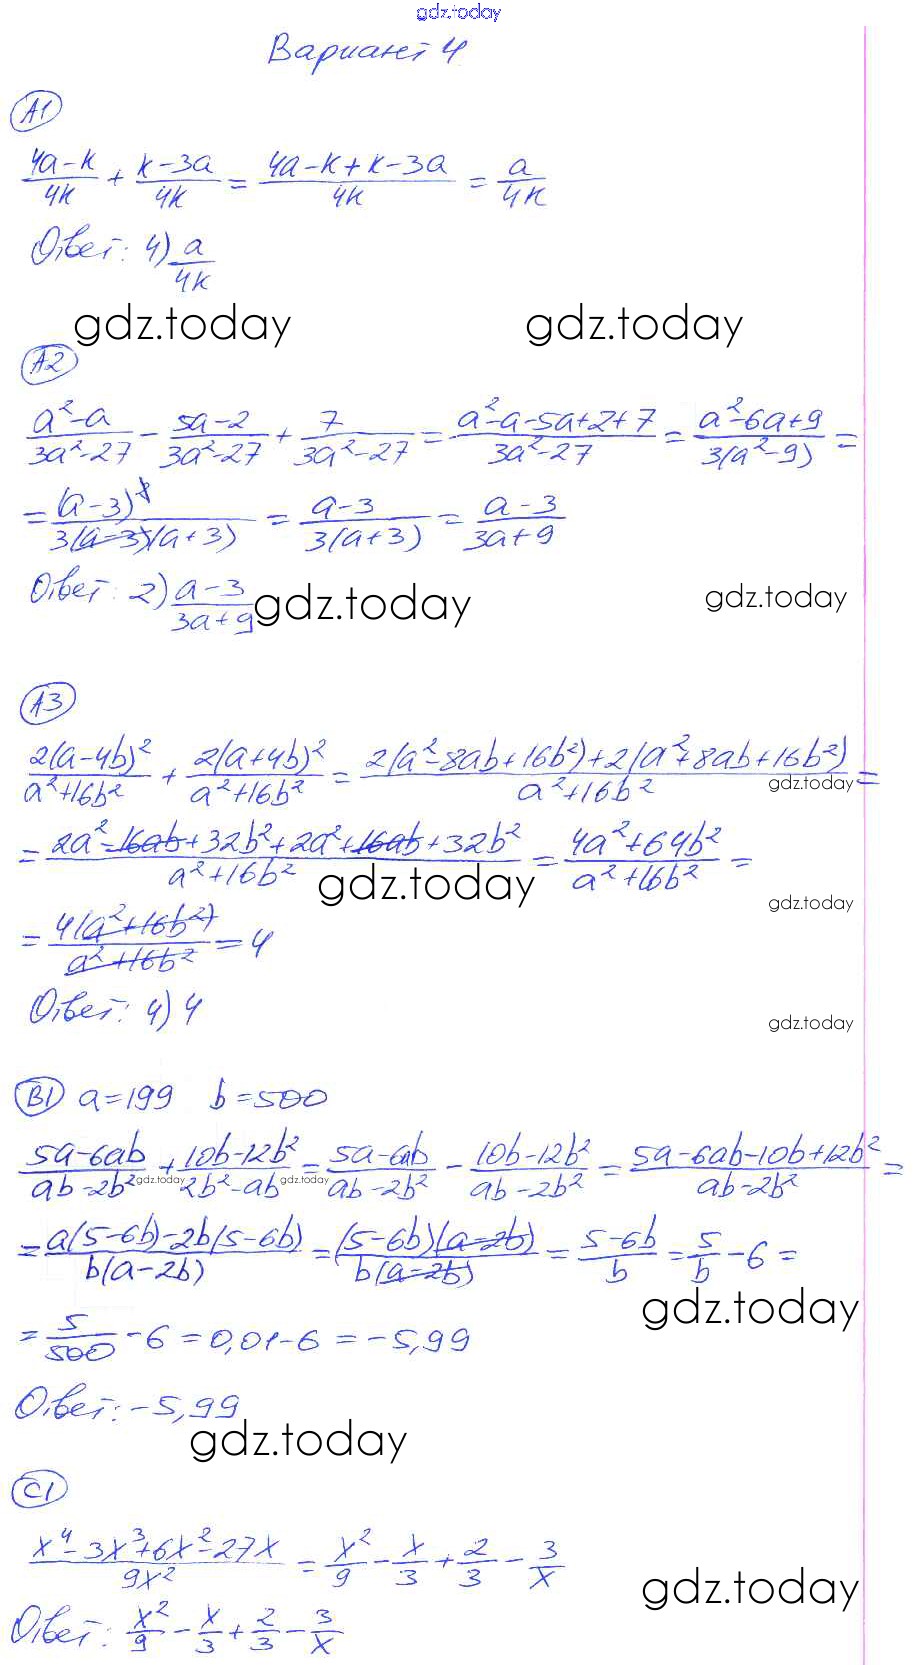 gdz.today
Вариант 4
А1
(4a-k)/4k + (k-3a)/4k = (4a-k+k-3a)/4k = a/4k
Ответ: 4) a/4k
gdz.today gdz.today
А2
(a²-a)/(3a²-27) - (5a-2)/(3a²-27) + 7/(3a²-27) = (a²-a-5a+2+7)/(3a²-27) = (a²-6a+9)/(3(a²-9)) =
= (a-3)²/(3(a-3)(a+3)) = (a-3)/(3(a+3)) = (a-3)/(3a+9)
Ответ: 2) (a-3)/(3a+9) gdz.today gdz.today
А3
2(a-4b)²/(a²+16b²) + 2(a+4b)²/(a²+16b²) = (2(a²-8ab+16b²)+2(a²+8ab+16b²))/(a²+16b²) =
gdz.today
= (2a²-16ab+32b²+2a²+16ab+32b²)/(a²+16b²) = (4a²+64b²)/(a²+16b²) =
gdz.today gdz.today
= 4(a²+16b²)/(a²+16b²) = 4
Ответ: 4) 4
gdz.today
В1 a=199 b=500
(5a-6ab)/(ab-2b²) + (10b-12b²)/(2b²-ab) = (5a-6ab)/(ab-2b²) - (10b-12b²)/(ab-2b²) = (5a-6ab-10b+12b²)/(ab-2b²) =
gdz.today gdz.today
= (a(5-6b)-2b(5-6b))/(b(a-2b)) = (5-6b)(a-2b)/(b(a-2b)) = (5-6b)/b = 5/b - 6 =
gdz.today
= 5/500 - 6 = 0,01-6 = -5,99
Ответ: -5,99
gdz.today
С1
(x⁴-3x³+6x²-27x)/9x² = x²/9 - x/3 + 2/3 - 3/x
gdz.today
Ответ: x²/9 - x/3 + 2/3 - 3/x